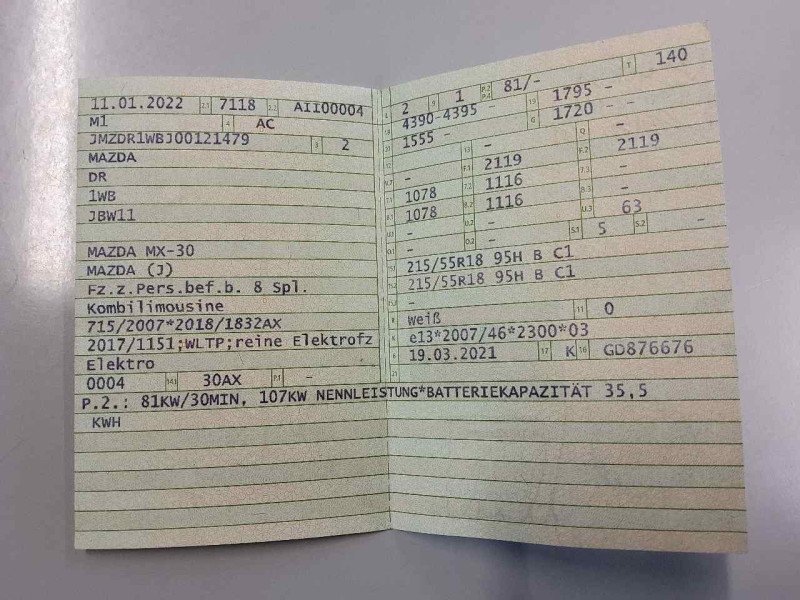 11.01.2022 2.1 7118 2.2 AII00004
M1 4 AC
JMZDR1WBJ00121479 3 2
MAZDA
DR
1WB
JBW11
MAZDA MX-30
MAZDA (J)
Fz.z.Pers.bef.b. 8 Spl.
Kombilimousine
715/2007*2018/1832AX
2017/1151;WLTP;reine Elektrofz
Elektro
0004 14.1 30AX P.1 –
2 9 1 P.2 P.4 81/- T 140
4390-4395 - 19 1795 -
1555 - G 1720 -
- 13 - Q -
- F.1 2119 F.2 2119
7.1 1078 7.2 1116 7.3 -
8.1 1078 8.2 1116 8.3 -
U.1 - U.2 - U.3 63
- O.2 - S.1 5 S.2 -
215/55R18 95H B C1
215/55R18 95H B C1
-
weiß 11 0
e13*2007/46*2300*03
19.03.2021 17 K 16 GD876676
P.2.: 81KW/30MIN, 107KW NENNLEISTUNG*BATTERIEKAPAZITÄT 35,5
KWH